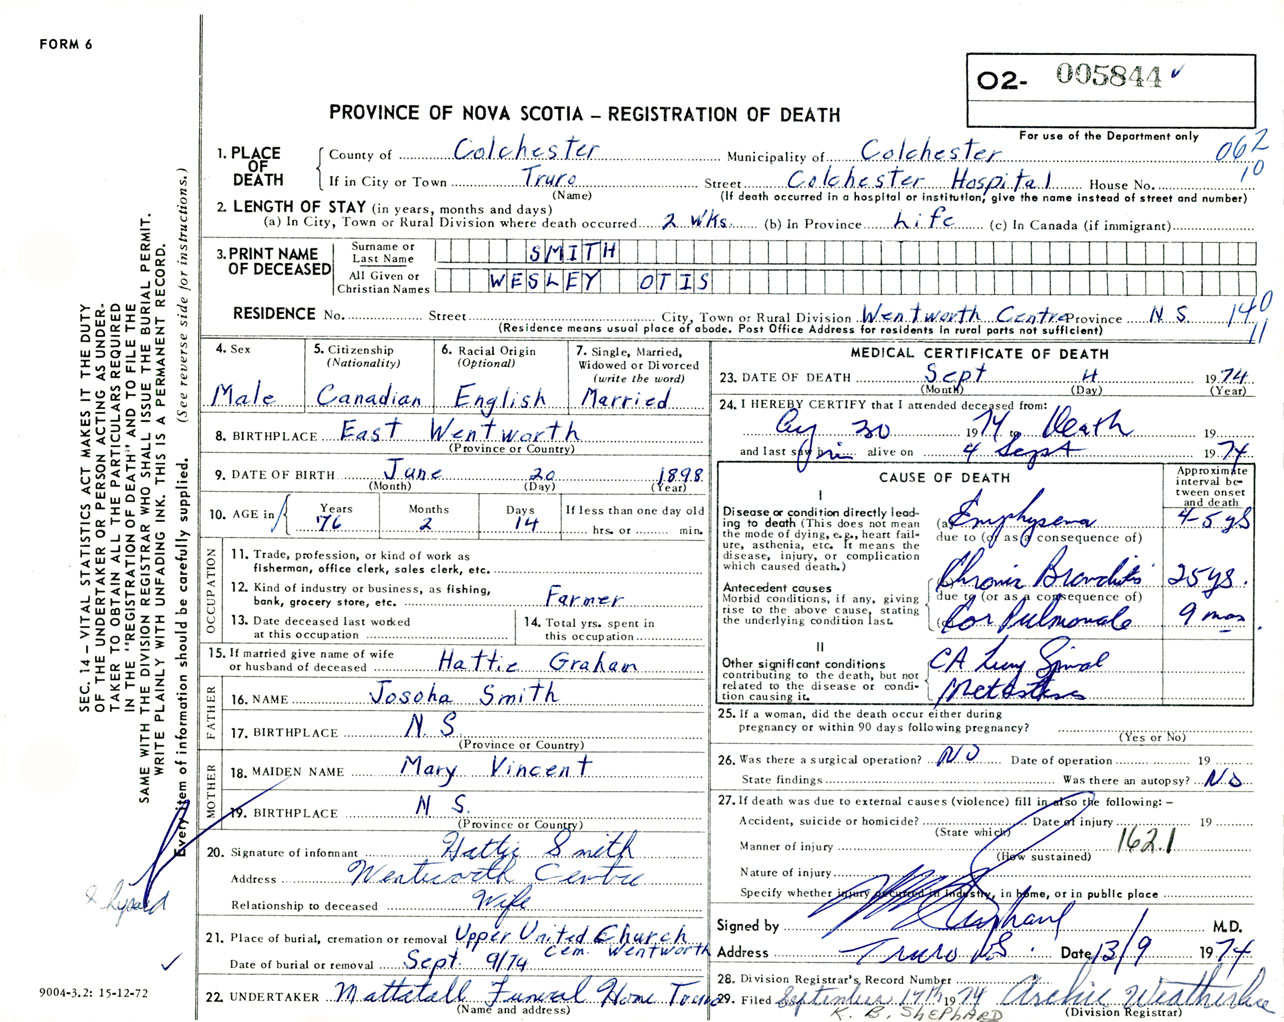 FORM 6
O2- 005844 ✓
For use of the Department only
PROVINCE OF NOVA SCOTIA – REGISTRATION OF DEATH
062
10
1. PLACE OF DEATH
County of Colchester Municipality of Colchester
If in City or Town Truro Street Colchester Hospital House No.
(Name) (If death occurred in a hospital or institution, give the name instead of street and number)
2. LENGTH OF STAY (in years, months and days)
(a) In City, Town or Rural Division where death occurred 2 Wks. (b) In Province Life (c) In Canada (if immigrant)
3. PRINT NAME OF DECEASED
Surname or Last Name SMITH
All Given or Christian Names WESLEY OTIS
RESIDENCE No. Street City, Town or Rural Division Wentworth Centre Province N S.
(Residence means usual place of abode. Post Office Address for residents in rural parts not sufficient)
140
11
4. Sex
Male
5. Citizenship
(Nationality)
Canadian
6. Racial Origin
(Optional)
English
7. Single, Married,
Widowed or Divorced
(write the word)
Married
8. BIRTHPLACE East Wentworth
(Province or Country)
9. DATE OF BIRTH June 20 1898
(Month) (Day) (Year)
10. AGE in
Years Months Days If less than one day old
76 2 14 hrs. or min.
OCCUPATION
11. Trade, profession, or kind of work as
fisherman, office clerk, sales clerk, etc.
12. Kind of industry or business, as fishing,
bank, grocery store, etc. Farmer
13. Date deceased last worked
at this occupation
14. Total yrs. spent in
this occupation
15. If married give name of wife
or husband of deceased Hattie Graham
FATHER
16. NAME Josoha Smith
17. BIRTHPLACE N. S
(Province or Country)
MOTHER
18. MAIDEN NAME Mary Vincent
19. BIRTHPLACE N S.
(Province or Country)
20. Signature of informant Hattie Smith
Address Wentworth Centre
Relationship to deceased Wife
21. Place of burial, cremation or removal Upper United Church
Cem. Wentworth
Date of burial or removal Sept. 9/74
22. UNDERTAKER Mattatall Funeral Home Truro
(Name and address)
MEDICAL CERTIFICATE OF DEATH
23. DATE OF DEATH Sept 4 1974
(Month) (Day) (Year)
24. I HEREBY CERTIFY that I attended deceased from:
Aug 30 1974 to Death 19
and last saw him alive on 4 Sept 1974
CAUSE OF DEATH
Approximate interval between onset and death
I
Disease or condition directly leading to death (This does not mean the mode of dying, e.g., heart failure, asthenia, etc. It means the disease, injury, or complication which caused death.)
(a) Emphysema 4-5 ys
due to (or as a consequence of)
Antecedent causes
Morbid conditions, if any, giving rise to the above cause, stating the underlying condition last.
(b) Chronic Bronchitis 25 ys.
due to (or as a consequence of)
(c) Cor Pulmonale 9 mos
II
Other significant conditions
contributing to the death, but not related to the disease or condition causing it.
CA Lung Spinal
Metastases
25. If a woman, did the death occur either during
pregnancy or within 90 days following pregnancy?
(Yes or No)
26. Was there a surgical operation? NO Date of operation 19
State findings Was there an autopsy? No
27. If death was due to external causes (violence) fill in also the following: –
Accident, suicide or homicide? Date of injury 19
(State which)
162.1
Manner of injury
(How sustained)
Nature of injury
Specify whether injury occurred in industry, in home, or in public place
Signed by M.D.
Address Truro N.S. Date 13/9 1974
28. Division Registrar's Record Number
29. Filed September 17th 1974 Archie Weatherbee
(Division Registrar)
K. B. SHEPHARD
SEC. 14 – VITAL STATISTICS ACT MAKES IT THE DUTY
OF THE UNDERTAKER OR PERSON ACTING AS UNDER-
TAKER TO OBTAIN ALL THE PARTICULARS REQUIRED
IN THE "REGISTRATION OF DEATH" AND TO FILE THE
SAME WITH THE DIVISION REGISTRAR WHO SHALL ISSUE THE BURIAL PERMIT.
WRITE PLAINLY WITH UNFADING INK. THIS IS A PERMANENT RECORD.
Every item of information should be carefully supplied. (See reverse side for instructions.)
✓
9004-3.2: 15-12-72